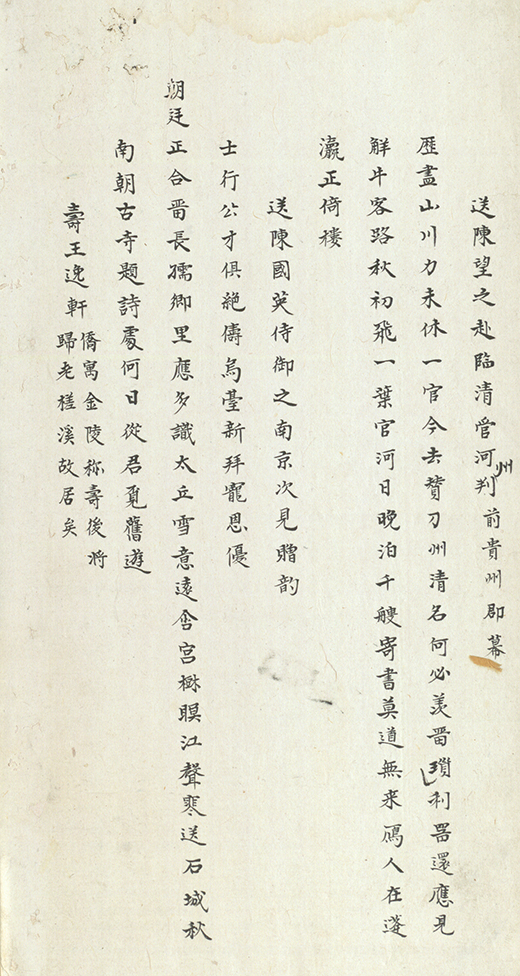 送陳望之赴臨清管河州判前貴州郡幕
歷盡山川力未休一官今去贊刀州清名何必羡畱瓚利噐還應見
觧牛客路秋初飛一葉官河日晚泊千艘寄書莫道無来鴈人在蓬
瀛正倚樓
送陳國英侍御之南京次見贈韵
士行公才俱絶儔烏臺新拜寵恩優
朝廷正合畱長孺鄉里應多識太丘雪意遠含宫樹暝江聲寒送石城秋
南朝古寺題詩處何日從君覓舊遊
壽王逸軒
僑寓金陵称壽後將
歸老槎溪故居矣